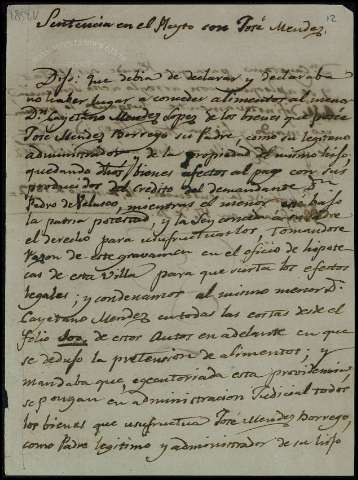 12
Sentencia en el Pleyto con José Mendez.
Dijo: que debia de declarar y declaraba
no haber lugar a conceder alimentos al menor
Dn. Cayetano Mendez Lopez de los bienes que posee
José Mendez Borrego su Padre, como su legitimo
administrador y de la propiedad del mismo hijo
quedando dhos bienes afectos al pago con sus
productos del credito del demandante Dn
Pedro de Velasco, mientras el menor esté bajo
la patria potestad, y la ley conceda a su Padre
el derecho para usufructuarlos, tomandose
razon de este gravamen en el oficio de hipote
cas de esta Villa para que surta los efectos
legales; y condenamos al mismo menor Dn
Cayetano Mendez en todas las costas desde el
folio de estos Autos en adelante en que
se dedujo la pretension de alimentos; y
mandaba que, executoriada esta providencia
se pongan en administracion Judicial todos
los bienes que usufructua José Mendez Borrego,
como Padre legitimo y administrador de su hijo